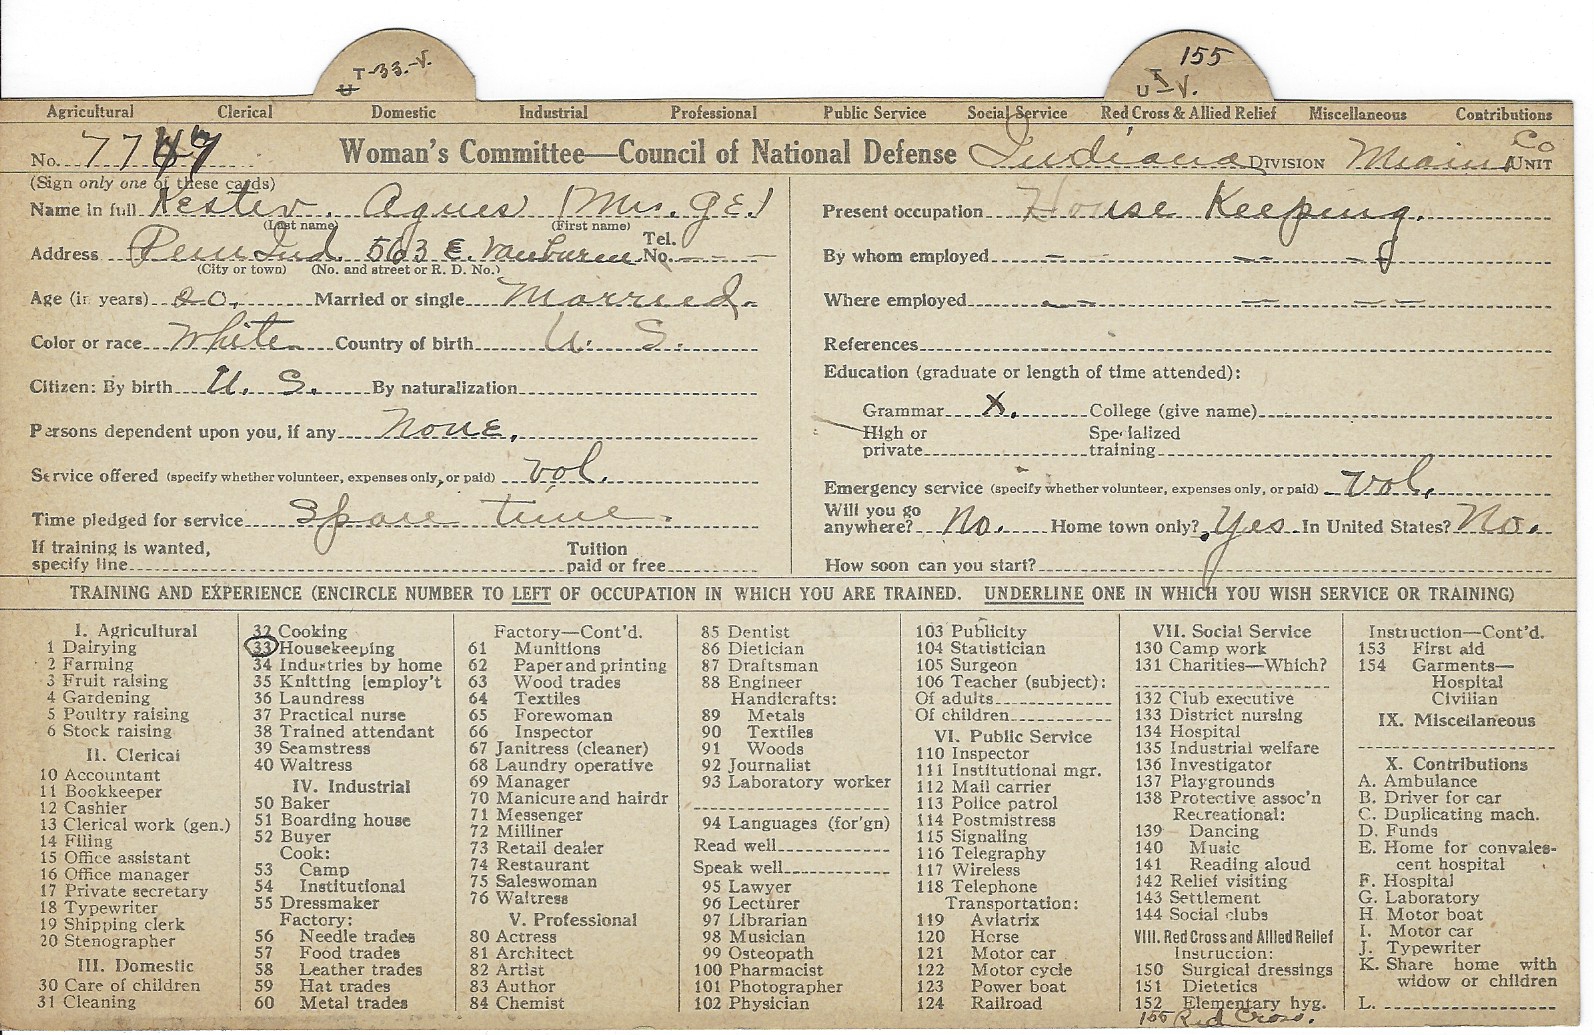 T-33.-V.
U
155
T
U - V.
Agricultural Clerical Domestic Industrial Professional Public Service Social Service Red Cross & Allied Relief Miscellaneous Contributions
No. 77 Woman's Committee—Council of National Defense Indiana DIVISION Miami Co UNIT
(Sign only one of these cards)
Name in full Kester. Agnes (Mrs. G.E.)
(Last name) (First name)
Address Peru Ind. 563 E. Vanburen Tel. No.
(City or town) (No. and street or R. D. No.)
Age (in years) 20. Married or single Married.
Color or race White Country of birth U. S.
Citizen: By birth U. S. By naturalization
Persons dependent upon you, if any None.
Service offered (specify whether volunteer, expenses only, or paid) Vol.
Time pledged for service Spare time.
If training is wanted,
specify line Tuition paid or free
Present occupation House Keeping.
By whom employed
Where employed
References
Education (graduate or length of time attended):
Grammar X. College (give name)
High or private Specialized training
Emergency service (specify whether volunteer, expenses only, or paid) Vol.
Will you go anywhere? No. Home town only? Yes In United States? No.
How soon can you start?
TRAINING AND EXPERIENCE (ENCIRCLE NUMBER TO LEFT OF OCCUPATION IN WHICH YOU ARE TRAINED. UNDERLINE ONE IN WHICH YOU WISH SERVICE OR TRAINING)
I. Agricultural
1 Dairying
2 Farming
3 Fruit raising
4 Gardening
5 Poultry raising
6 Stock raising
II. Clerical
10 Accountant
11 Bookkeeper
12 Cashier
13 Clerical work (gen.)
14 Filing
15 Office assistant
16 Office manager
17 Private secretary
18 Typewriter
19 Shipping clerk
20 Stenographer
III. Domestic
30 Care of children
31 Cleaning
32 Cooking
33 Housekeeping
34 Industries by home
35 Knitting [employ't
36 Laundress
37 Practical nurse
38 Trained attendant
39 Seamstress
40 Waitress
IV. Industrial
50 Baker
51 Boarding house
52 Buyer
Cook:
53 Camp
54 Institutional
55 Dressmaker
Factory:
56 Needle trades
57 Food trades
58 Leather trades
59 Hat trades
60 Metal trades
Factory—Cont'd.
61 Munitions
62 Paper and printing
63 Wood trades
64 Textiles
65 Forewoman
66 Inspector
67 Janitress (cleaner)
68 Laundry operative
69 Manager
70 Manicure and hairdr
71 Messenger
72 Milliner
73 Retail dealer
74 Restaurant
75 Saleswoman
76 Waitress
V. Professional
80 Actress
81 Architect
82 Artist
83 Author
84 Chemist
85 Dentist
86 Dietician
87 Draftsman
88 Engineer
Handicrafts:
89 Metals
90 Textiles
91 Woods
92 Journalist
93 Laboratory worker
94 Languages (for'gn)
Read well
Speak well
95 Lawyer
96 Lecturer
97 Librarian
98 Musician
99 Osteopath
100 Pharmacist
101 Photographer
102 Physician
103 Publicity
104 Statistician
105 Surgeon
106 Teacher (subject):
Of adults
Of children
VI. Public Service
110 Inspector
111 Institutional mgr.
112 Mail carrier
113 Police patrol
114 Postmistress
115 Signaling
116 Telegraphy
117 Wireless
118 Telephone
Transportation:
119 Aviatrix
120 Horse
121 Motor car
122 Motor cycle
123 Power boat
124 Railroad
VII. Social Service
130 Camp work
131 Charities—Which?
132 Club executive
133 District nursing
134 Hospital
135 Industrial welfare
136 Investigator
137 Playgrounds
138 Protective assoc'n
Recreational:
139 Dancing
140 Music
141 Reading aloud
142 Relief visiting
143 Settlement
144 Social clubs
VIII. Red Cross and Allied Relief
Instruction:
150 Surgical dressings
151 Dietetics
152 Elementary hyg.
155 Red Cross.
Instruction—Cont'd.
153 First aid
154 Garments—
Hospital
Civilian
IX. Miscellaneous
X. Contributions
A. Ambulance
B. Driver for car
C. Duplicating mach.
D. Funds
E. Home for convales-
cent hospital
F. Hospital
G. Laboratory
H. Motor boat
I. Motor car
J. Typewriter
K. Share home with
widow or children
L.